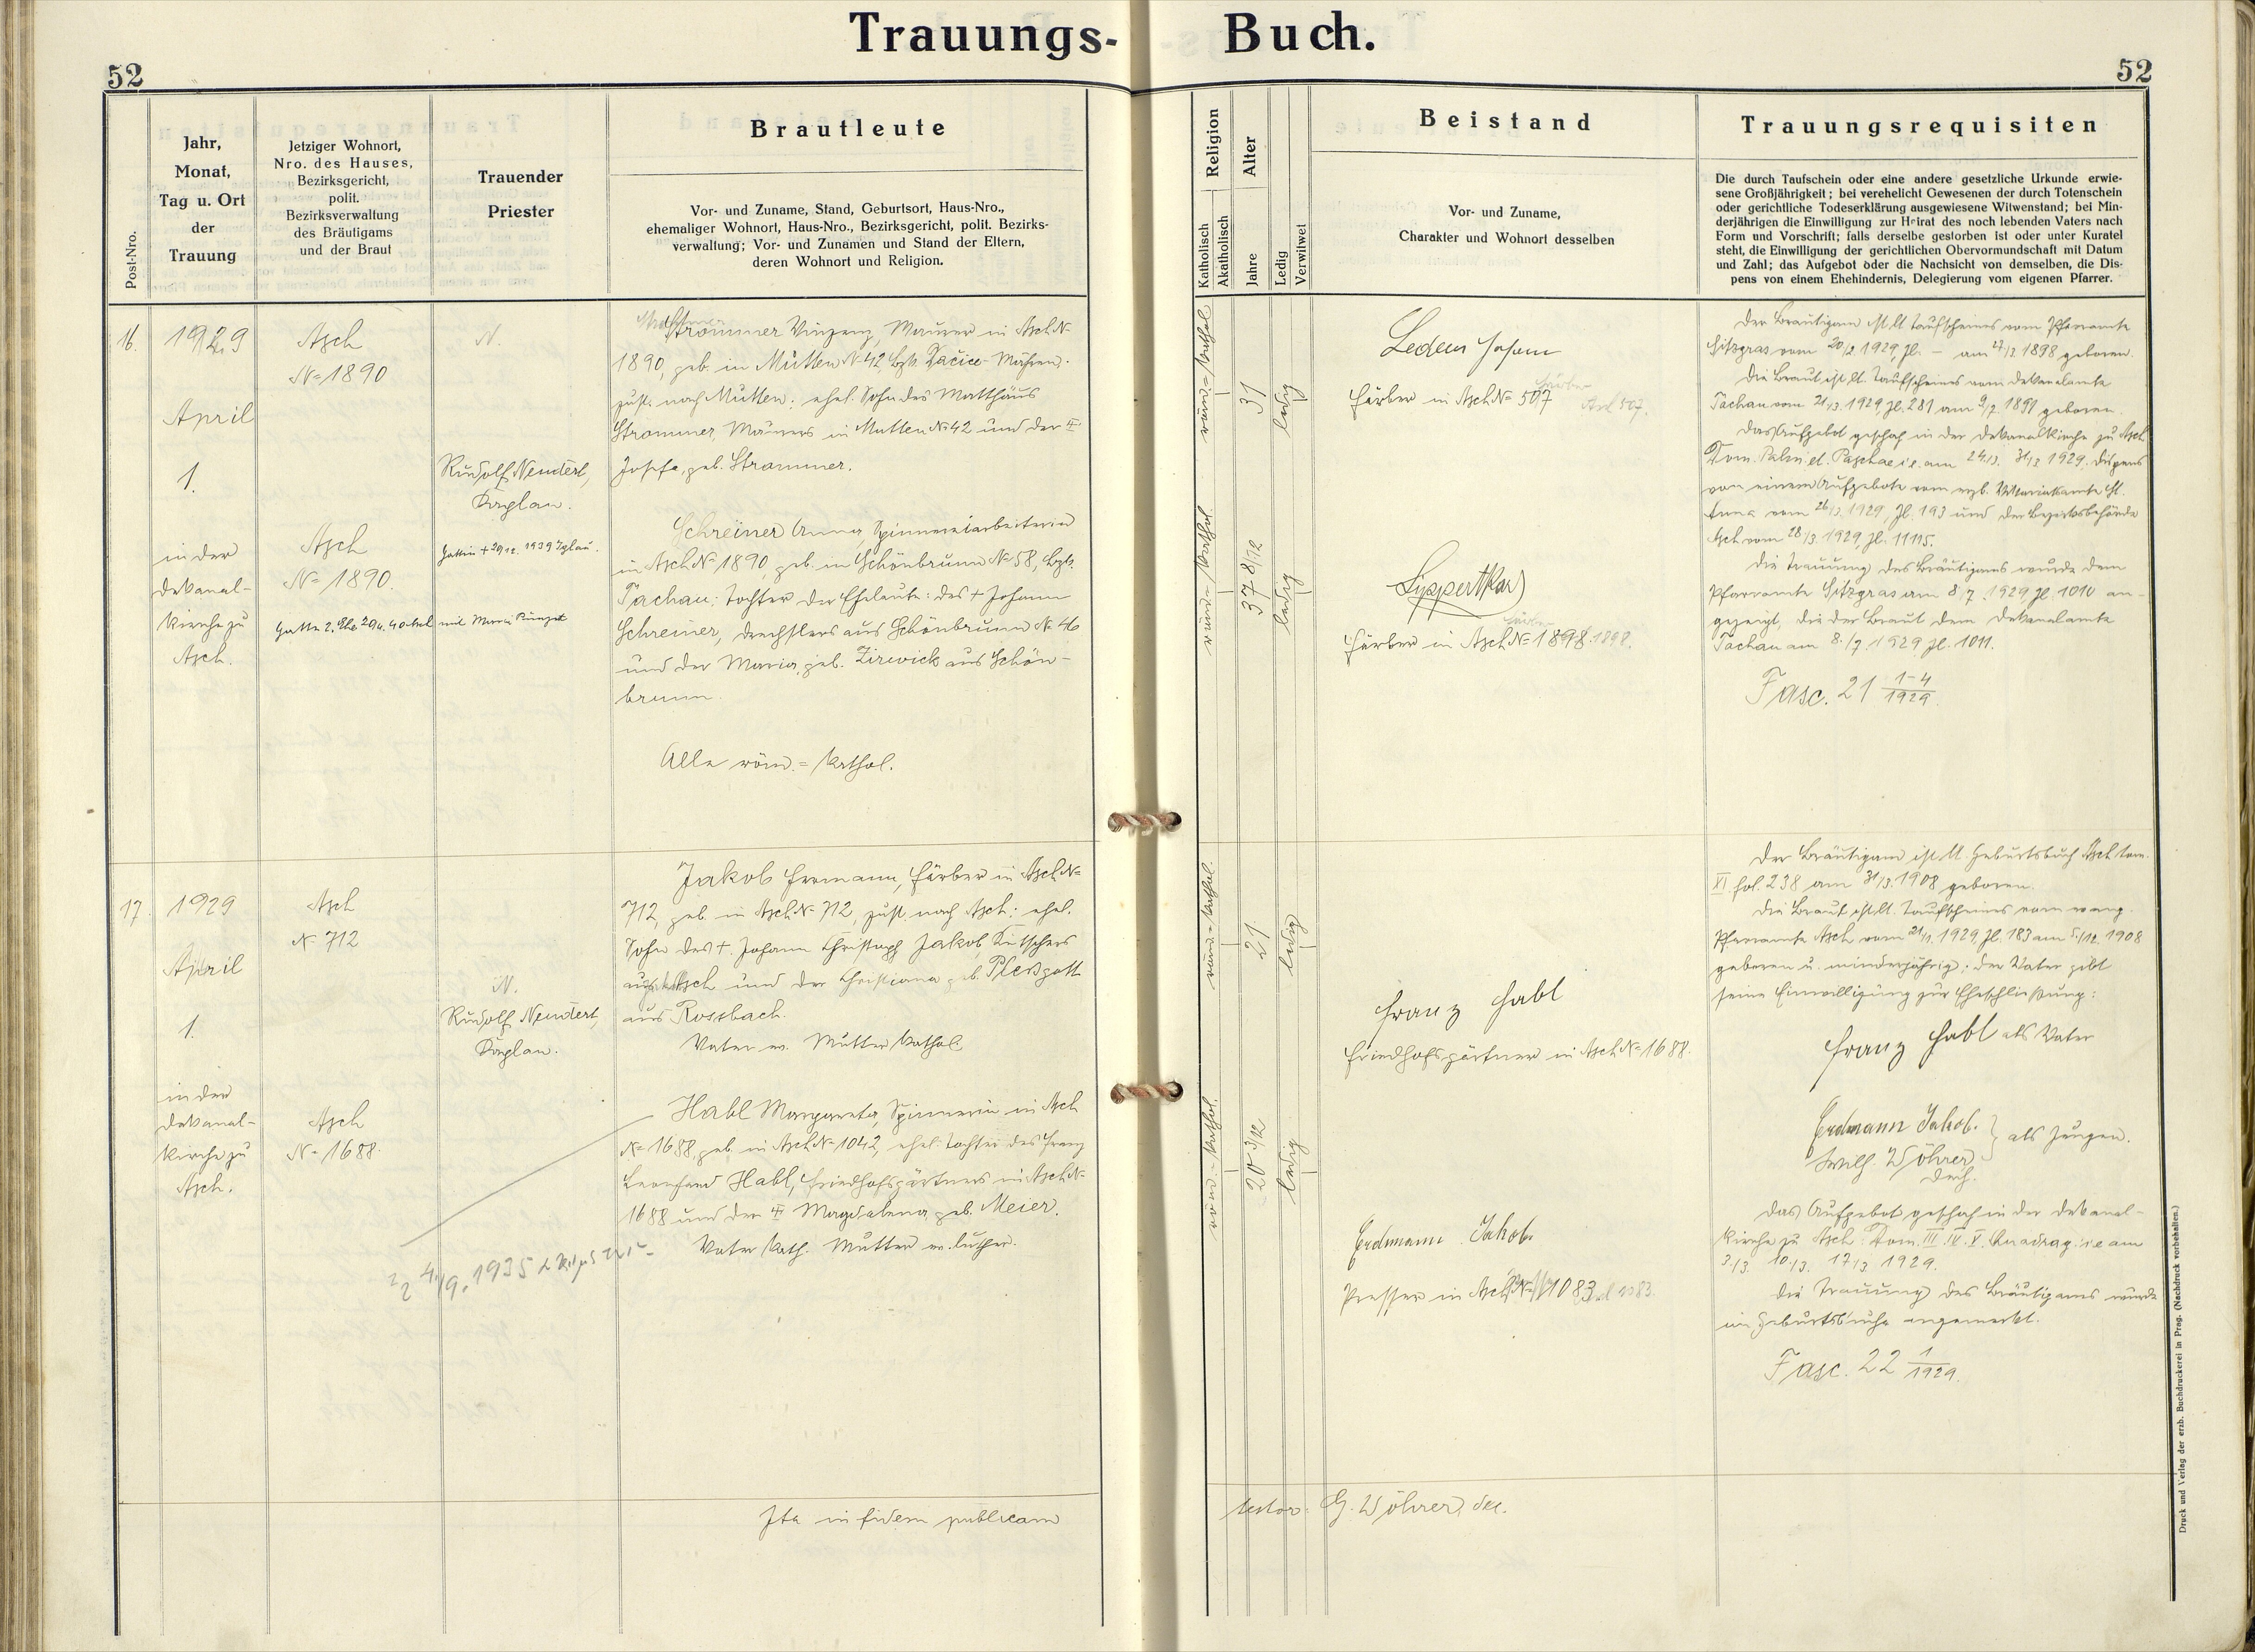 Trauungs- Buch.
52
52
Post-Nro.
Jahr,
Monat,
Tag u. Ort
der
Trauung
Jetziger Wohnort,
Nro. des Hauses,
Bezirksgericht,
polit.
Bezirksverwaltung
des Bräutigams
und der Braut
Trauender
Priester
Brautleute
Vor- und Zuname, Stand, Geburtsort, Haus-Nro.,
ehemaliger Wohnort, Haus-Nro., Bezirksgericht, polit. Bezirks-
verwaltung; Vor- und Zunamen und Stand der Eltern,
deren Wohnort und Religion.
Religion
Katholisch
Akatholisch
Alter
Jahre
Ledig
Verwitwet
Beistand
Vor- und Zuname,
Charakter und Wohnort desselben
Trauungsrequisiten
Die durch Taufschein oder eine andere gesetzliche Urkunde erwie-
sene Großjährigkeit; bei verehelicht Gewesenen der durch Totenschein
oder gerichtliche Todeserklärung ausgewiesene Witwenstand; bei Min-
derjährigen die Einwilligung zur Heirat des noch lebenden Vaters nach
Form und Vorschrift; falls derselbe gestorben ist oder unter Kuratel
steht, die Einwilligung der gerichtlichen Obervormundschaft mit Datum
und Zahl; das Aufgebot oder die Nachsicht von demselben, die Dis-
pens von einem Ehehindernis, Delegierung vom eigenen Pfarrer.
16.
1929
April
1.
in der
Dekanal-
kirche zu
Asch.
Asch
N= 1890
Asch
N= 1890.
Gatte 2. Ehe
N.
Rudolf Neudert,
Kaplan.
Gattin + 29/12. 1939 Iglau.
mit Maria
Strommer Vinzenz, Maurer in Asch N=
1890, geb. in Mutten N= 42, Bzk. Dačice - Mähren.
zust. nach Mutten; ehel. Sohn des Matthäus
Strommer, Maurers in Mutten N= 42 und der
Josefa, geb. Strommer.
Schreiner Anna, Spinnereiarbeiterin
in Asch N= 1890, geb. in Schönbrunn N= 58, Bzk.
Tachau; Tochter der Eheleute: des + Johann
Schreiner, Drechslers aus Schönbrunn N= 46
und der Maria, geb. Zirwick aus Schön-
brunn.
Alle röm.= kathol.
röm.= kathol.
31
ledig
röm.= kathol.
37 8/12
ledig
Lederer Johann
Färber in Asch N= 507
Lippert Karl
Färber in Asch N= 1898.
Der Bräutigam ist lt. Taufscheines vom Pfarramte
Sitzgras vom 20/2. 1929, Zl. – am 27/3. 1898 geboren.
Die Braut ist lt. Taufscheines vom Dekanalamte
Tachau vom 21/3. 1929, Zl. 281 am 9/7. 1891 geboren.
Das Aufgebot geschah in der Dekanalkirche zu Asch
Dom. Palm. et. Paschae i. e. am 24/3. 31/3. 1929. Dispens
von einem Aufgebote vom erzb. Vikariatsamte St.
Anna vom 26/3. 1929, Zl. 193 und der Bezirksbehörde
Asch vom 28/3. 1929, Zl. 11115.
Die Trauung des Bräutigams wurde dem
Pfarramte Sitzgras am 8/7. 1929, Zl. 1010 an-
gezeigt, die der Braut dem Dekanalamte
Tachau am 8./7. 1929, Zl. 1011.
Fasc. 21 1-4/1929.
17.
1929
April
1.
in der
Dekanal-
kirche zu
Asch.
Asch
N= 712
Asch
N= 1688.
N.
Rudolf Neudert,
Kaplan.
Jakob Hermann, Färber in Asch N=
712, geb. in Asch N= 712, zust. nach Asch; ehel.
Sohn des +. Johann Christoph Jakob, Kutschers
aus Asch und der Christiana geb. Ploßgott
aus Rossbach.
Vater ev. Mutter kathol.
Habl Margareta, Spinnerin in Asch
N= 1688, geb. in Asch N= 1042, ehel. Tochter des Franz
Leonhard Habl, Friedhofsgärtners in Asch N=
1688 und der Magdalena geb. Meier.
Vater kath. Mutter ev. luther.
4./9. 1935
röm.= kathol.
21
ledig
röm.= kathol.
20 3/12
ledig
Franz Habl
Friedhofsgärtner in Asch N= 1688.
Erdmann Jakob.
Presser in Asch N= 1083
Der Bräutigam ist lt. Geburtsbuch Asch tom.
XI fol. 238 am 31/3. 1908 geboren.
Die Braut ist lt. Taufscheines vom evang.
Pfarramte Asch vom 21/1. 1929, Zl. 183 am 5./12. 1908
geboren u. minderjährig; der Vater gibt
seine Einwilligung zur Eheschließung:
Franz Habl als Vater
Erdmann Jakob.
Wilh. Wöhrer
Dech.
als Zeugen.
Das Aufgebot geschah in der Dekanal-
kirche zu Asch: Dom. III. IV. V. Quadrag. i. e. am
3/3. 10./3. 17/3 1929.
Die Trauung des Bräutigams wurde
im Geburtsbuche angemerkt.
Fasc. 22 1/1929.
Ita in fidem publicam
testor: G. Wöhrer, dec.
Druck und Verlag der erzb. Buchdruckerei in Prag. (Nachdruck vorbehalten.)